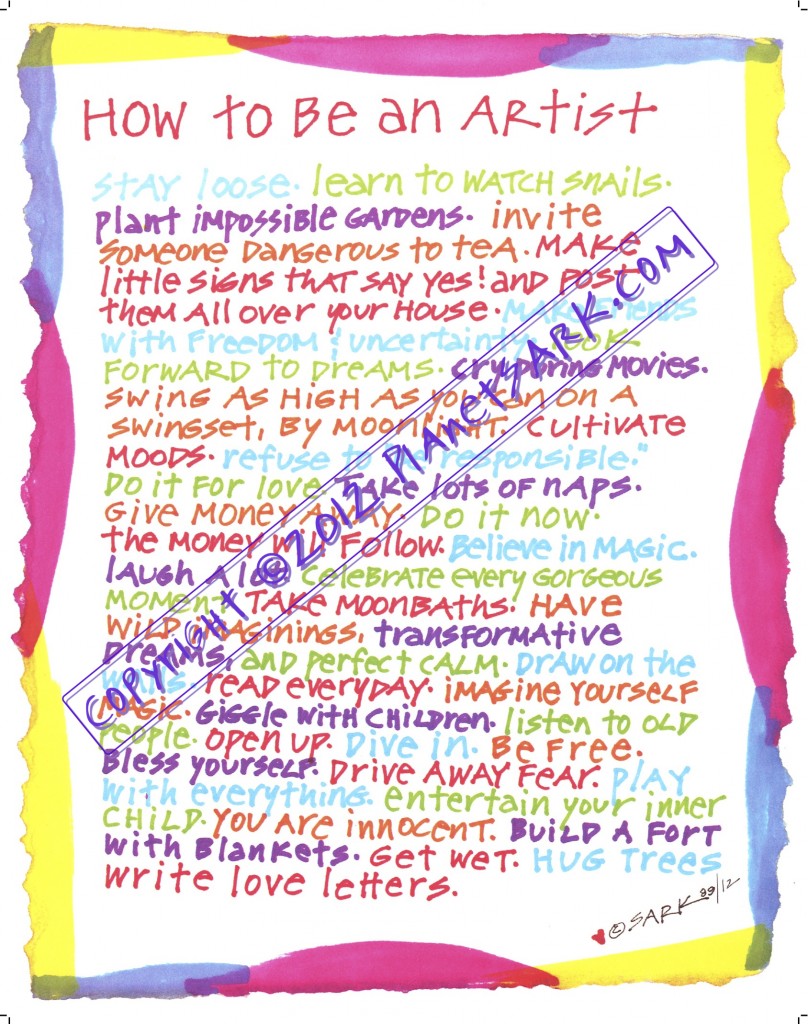 How to Be an Artist
stay loose. learn to watch snails.
plant impossible gardens. invite
someone dangerous to tea. Make
little signs that say yes! and post
them all over your house. Make friends
with freedom & uncertainty. Look
forward to dreams. cry during movies.
swing as high as you can on a
swingset, by moonlight. cultivate
moods. refuse to "be responsible."
Do it for love. Take lots of naps.
Give money away. Do it now.
the money will follow. Believe in magic.
laugh a lot. celebrate every gorgeous
moment. Take moonbaths. Have
wild imaginings, transformative
dreams, and perfect calm. Draw on the
walls. read everyday. imagine yourself
magic. Giggle with children. listen to old
people. open up. Dive in. Be free.
Bless yourself. Drive away fear. play
with everything. entertain your inner
child. You are innocent. Build a fort
with blankets. Get wet. Hug trees
write love letters.
© SARK 89/12
Copyright © 2012 PlanetSARK.com